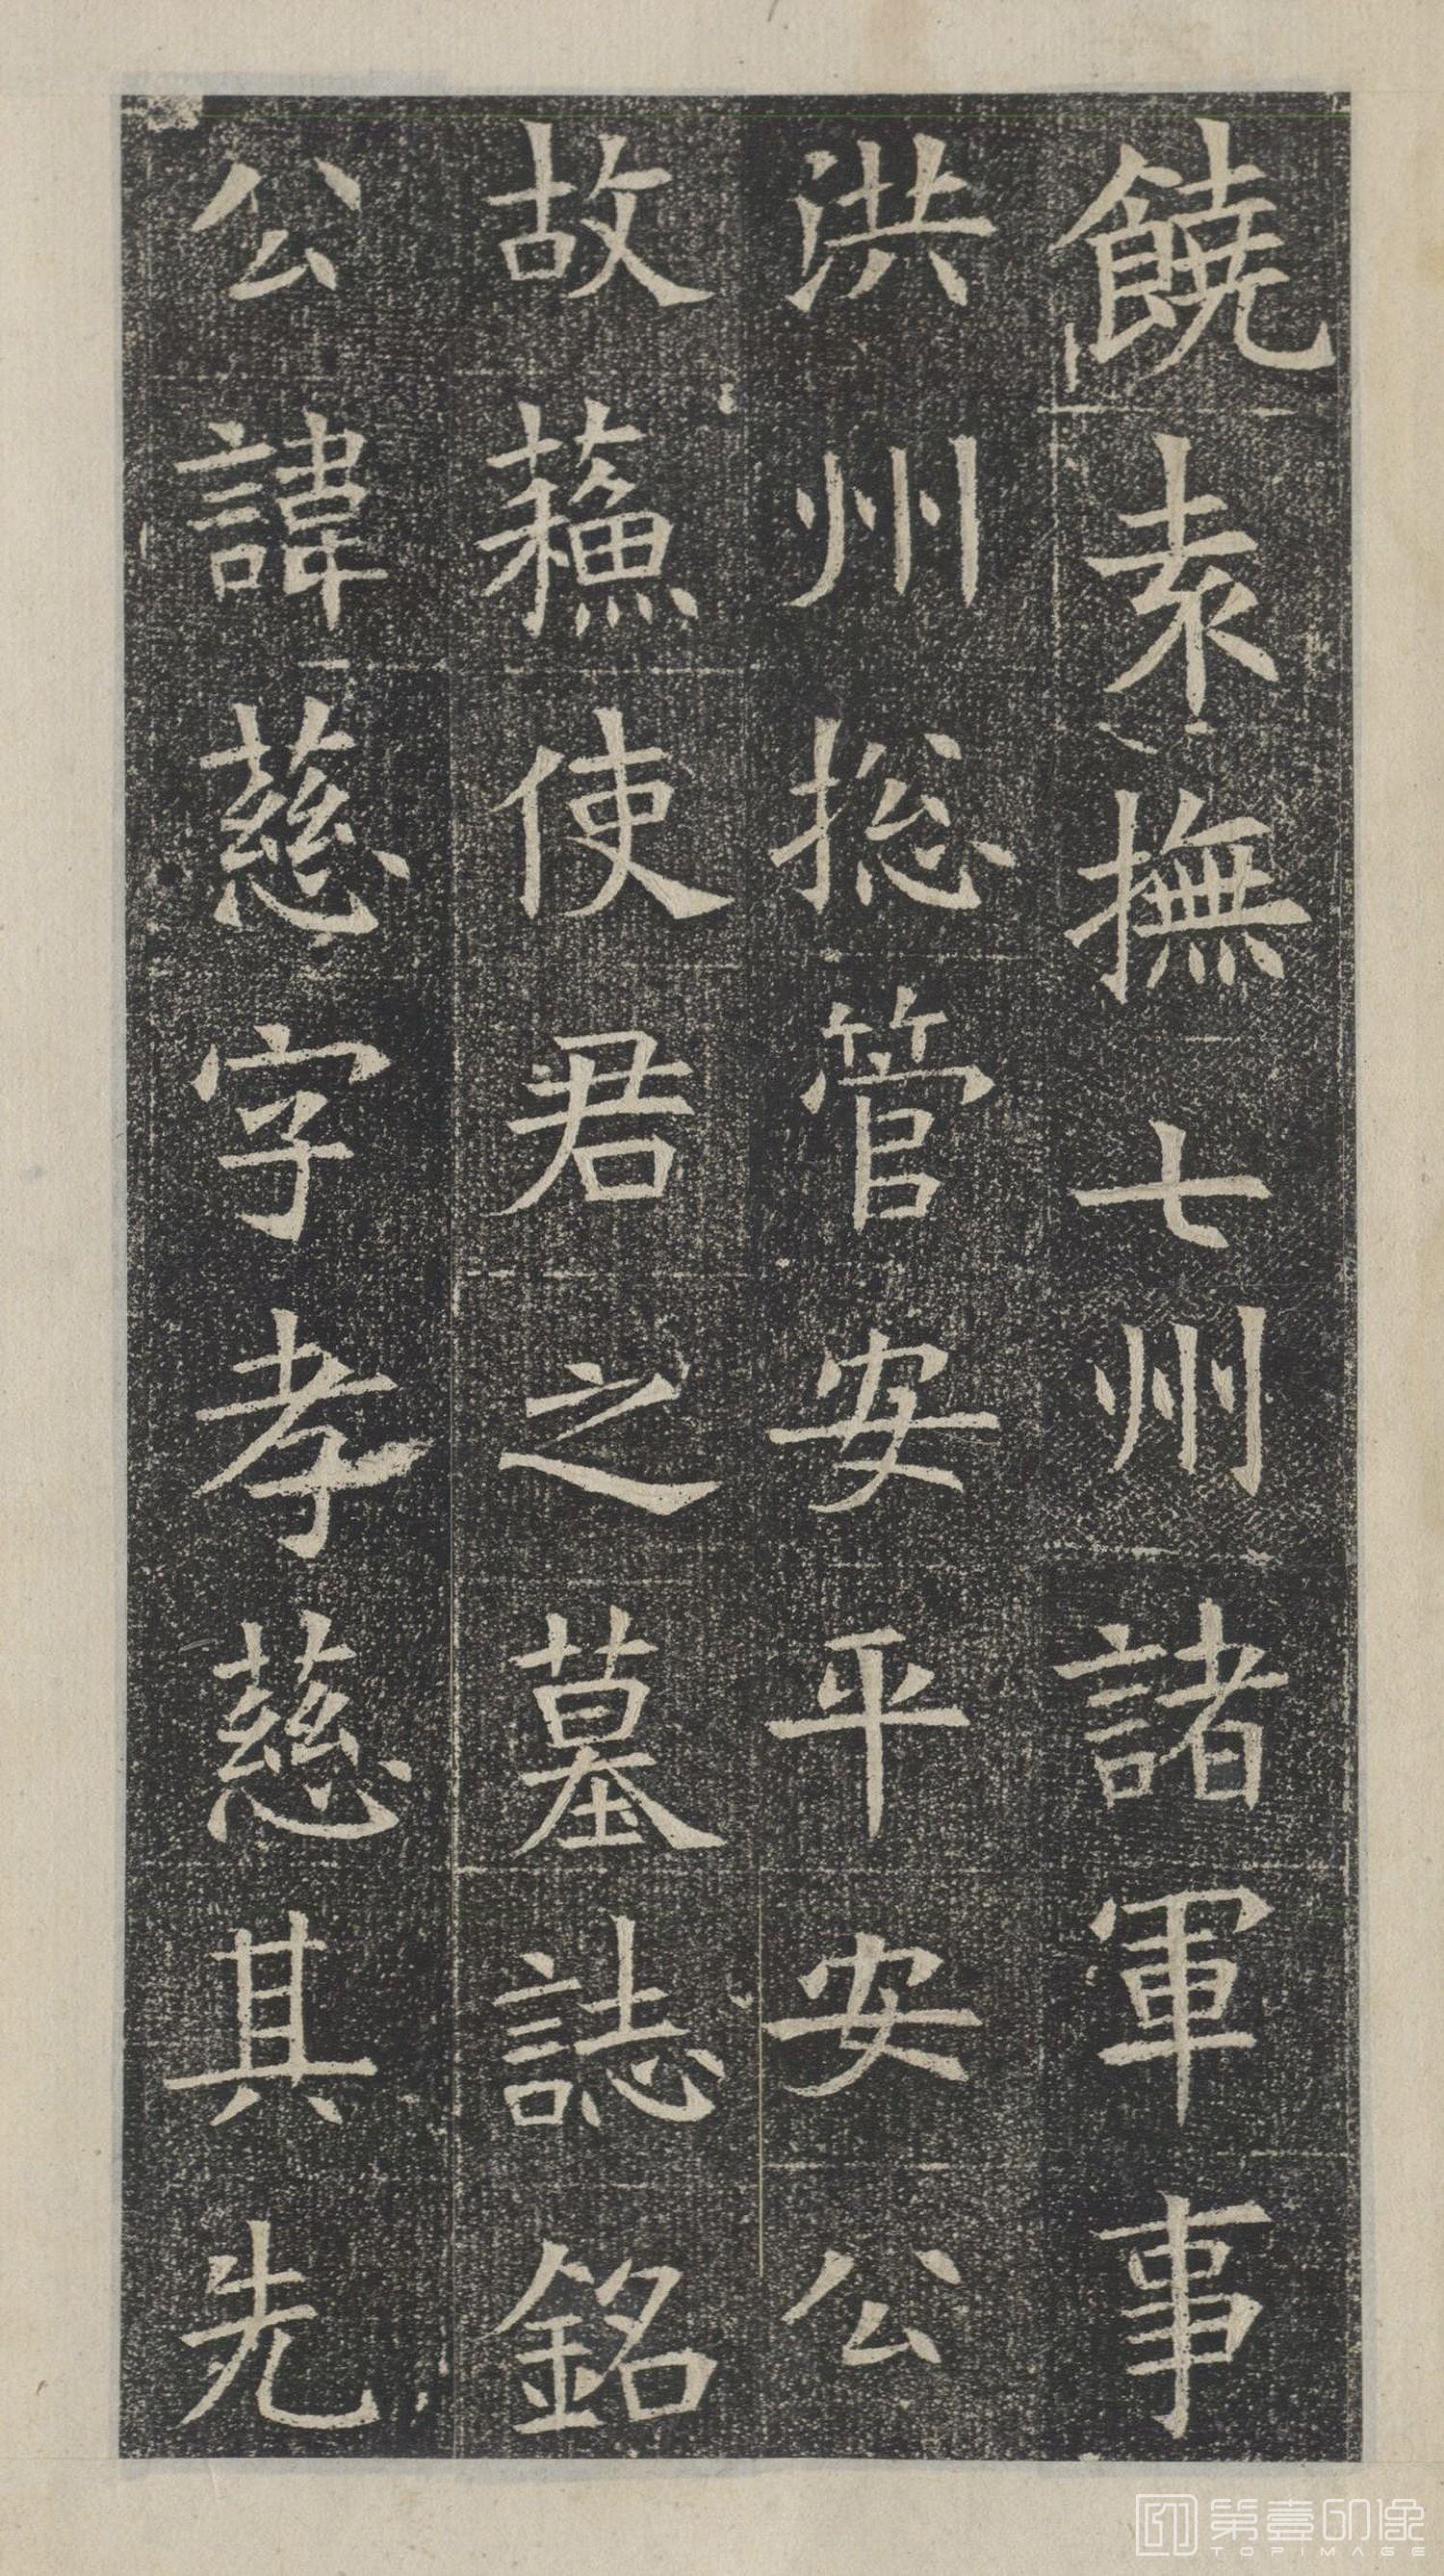 饒袁撫七州諸軍事
洪州捴管安平安公
故蘓使君之墓誌銘
公諱慈字孝慈其先
第壹印像
TOPIMAGE